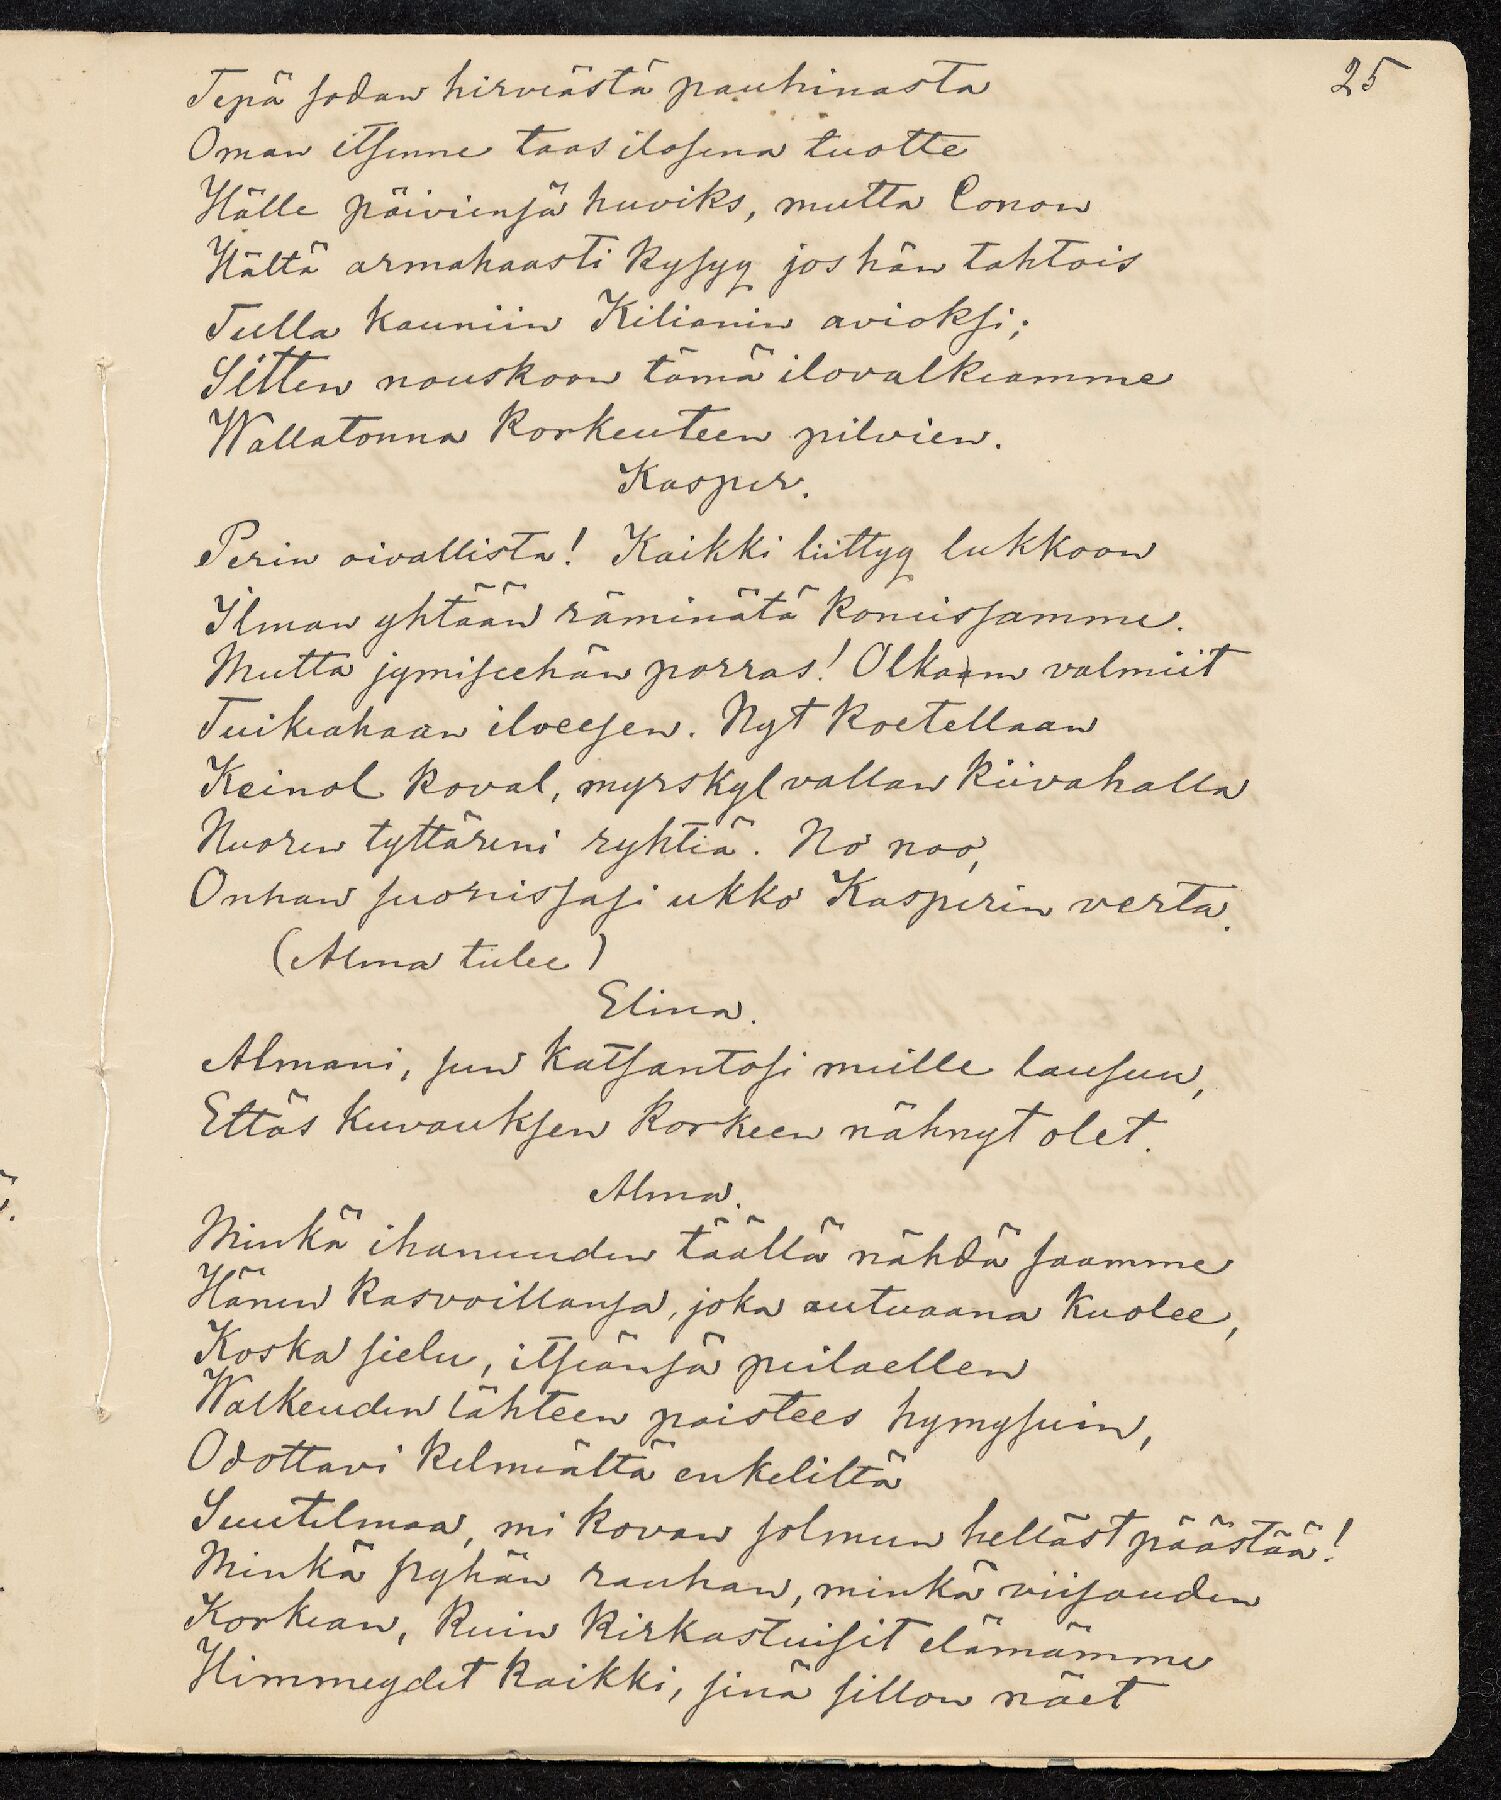 25
Tepä sodan hirveästä pauhinasta
Oman itsenne taas ilosena tuotte
Hälle päiviensä huviks, mutta Conon
Hältä armahaasti kysyy jos hän tahtois
Tulla kauniin Kilianin avioksi;
Sitten nouskoon tämä ilovalkeamme
Wallatonna korkeuteen pilvien.
Kasper.
Perin oivallista! Kaikki liittyy lukkoon
Ilman yhtään räminätä koneissamme.
Mutta jymiseehän porras! Olkaam valmiit
Tuikeahaan iloeesen. Nyt koetellaan
Keinol koval, myrskyl vallan kiivahalla
Nuoren tyttäreni ryhtiä. No noo,
Onhan suonissasi ukko Kasperin verta.
(Alma tulee)
Elina.
Almani, sun katsantosi meille lausuu,
Ettäs kuvauksen korkeen nähnyt olet.
Alma.
Minkä ihanuuden täällä nähdä saamme
Hänen kasvoillansa, joka autuaana kuolee,
Koska sielu, itseänsä peilaellen
Walkeuden lähteen paistees hymysuin,
Odottavi kelmeältä enkeliltä
Suutelmaa, mi kovan solmun helläst päästää!
Minkä pyhän rauhan, minkä viisauden
Korkean, kuin kirkastuisit elämämme
Himmeydet kaikki, sinä sillon näet